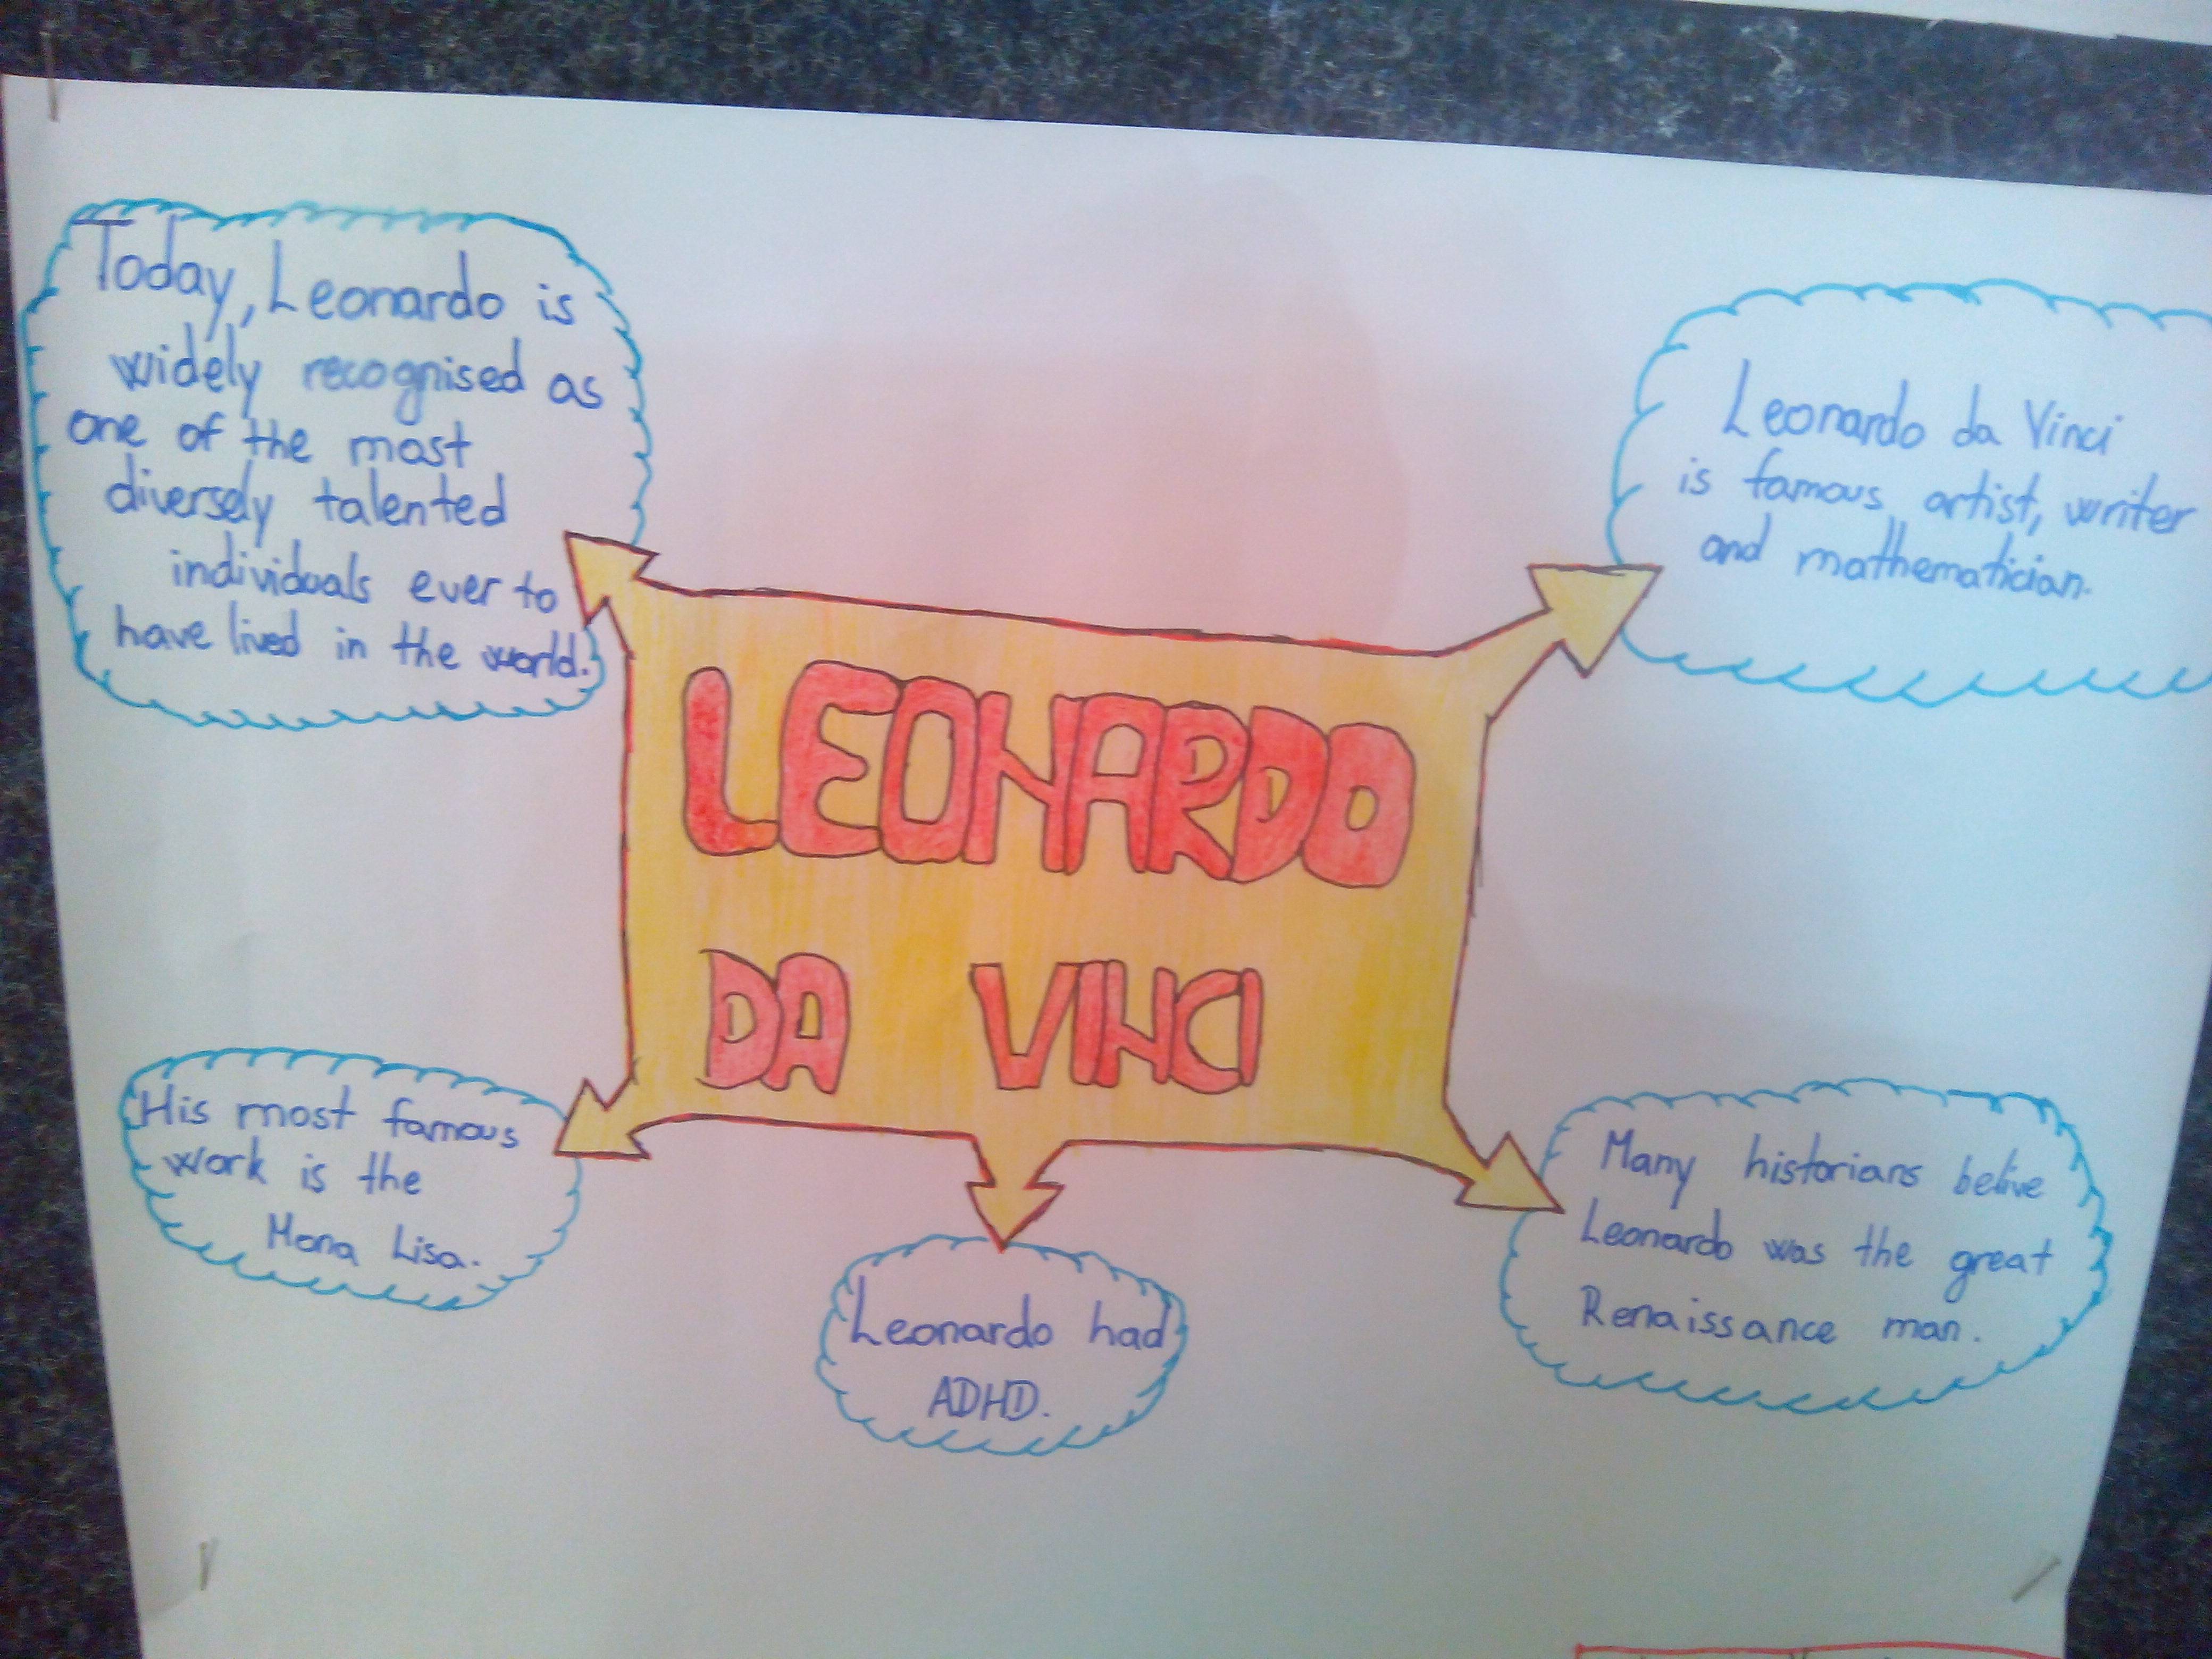 Today, Leonardo is
widely recognised as
one of the most
diversely talented
individuals ever to
have lived in the world.
Leonardo da Vinci
is famous artist, writer
and mathematician.
LEONARDO
DA VINCI
His most famous
work is the
Mona Lisa.
Leonardo had
ADHD.
Many historians belive
Leonardo was the great
Renaissance man.